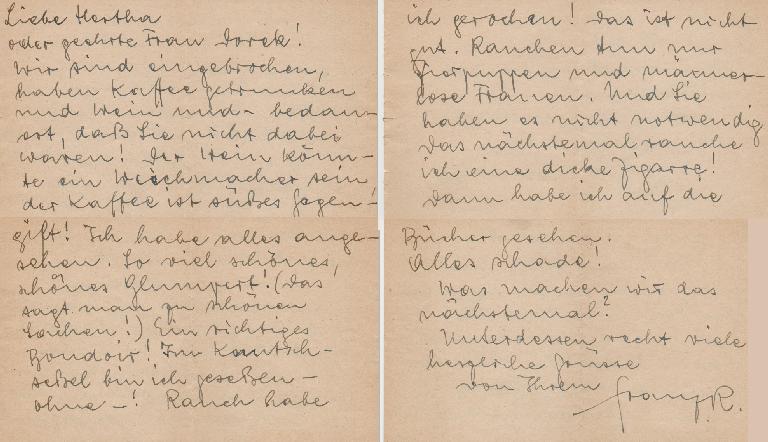 Liebe Hertha
oder geehrte Frau Dorek!
Wir sind eingebrochen,
haben Kaffee getrunken
und Wein und – bedau-
ert, daß Sie nicht dabei
waren! Der Wein könn-
te ein Weichmacher sein
der Kaffee ist süßes Gegen-
gift! Ich habe alles ange-
sehen. So viel schönes,
schönes Glumpert! (das
sagt man zu schönen
Sachen!) Ein richtiges
Boudoir! Im Kautsch-
seßel bin ich geseßen –
ohne –! Rauch habe
ich gerochen! Das ist nicht
gut. Rauchen tun nur
Zierpuppen und männer-
lose Frauen. Und Sie
haben es nicht notwendig
das nächstemal rauche
ich eine dicke Zigarre!
Dann habe ich auf die
Bücher gesehen.
Alles schade!
Was machen wir das
nächstemal?
Unterdessen recht viele
herzliche Grüsse
von Ihrem
Franz R.